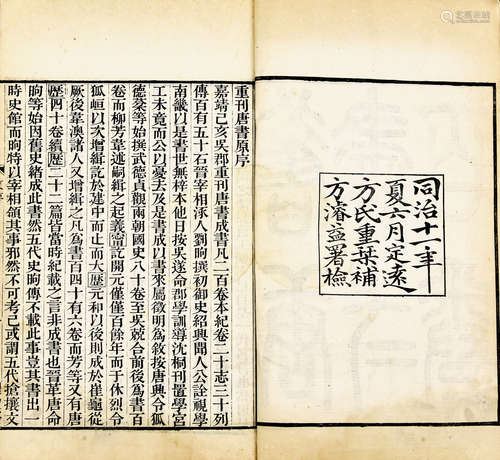 同治十一年
夏六月定遠
方氏重栞補
方濬益署檢
重刊唐書原序
嘉靖己亥吳郡重刊唐書成書凡二百卷本紀卷二十志三十列
傳百有五十石晉宰相涿人劉昫撰初御史紹興聞人公詮視學
南畿以是書世無梓本他日按吳遂命郡學訓導沈桐刊置學宮
工未竟而公以憂去及是書成以書來屬徵明為敘按唐興令狐
德棻等始撰武德貞觀兩朝國史八十卷至吳兢合前後為書百
卷而柳芳韋述嗣緝之起義寧訖開元僅僅百餘年而于休烈令
狐峘以次增緝訖於建中而止而大歷元和以後則成於崔龜從
厥後韋澳諸人又增緝之凡為書百四十有六卷而芳等又有唐
歷四十卷續歷二十二篇皆當時紀載之言非成書也晉革唐命
昫等始因舊史緒成此書然五代史昫傳不載此事豈其書出一
時史館而昫特以宰相領其事邪然不可考已或謂五代搶攘文